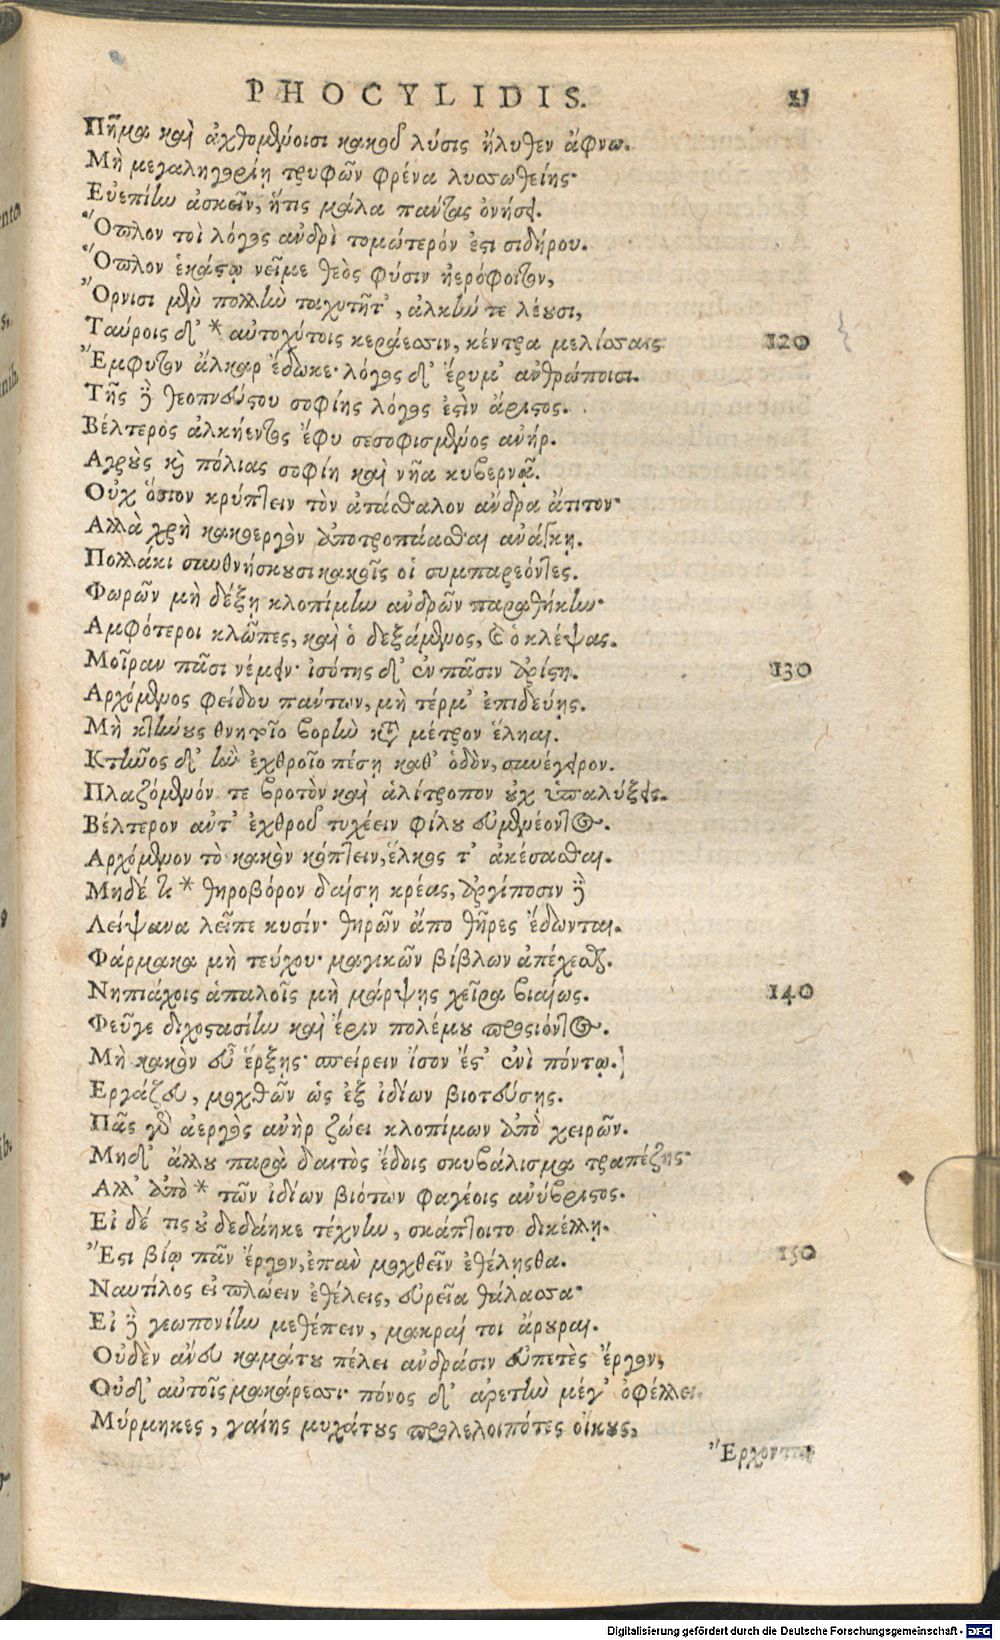 PHOCYLIDIS. 21
Πῆμα καὶ ἀχθομένοισι κακοῦ λύσις ἤλυθεν ἄφνω.
Μὴ μεγαληγορίῃ τρυφῶν φρένα λυσσωθείης·
Εὐεπίην ἀσκεῖν, ἥτις μάλα πάντας ὀνήσει.
Ὅπλον τοὶ λόγος ἀνδρὶ τομώτερόν ἐστι σιδήρου.
Ὅπλον ἑκάστῳ νεῖμε θεὸς φύσιν ἠερόφοιτον,
Ὄρνισι μὲν πολλὴν ταχυτῆτ', ἀλκήν τε λέουσι,
Ταύροις δ' * αὐτοχύτοις κεράεσσιν, κέντρα μελίσσαις 120
Ἔμφυτον ἄλκαρ ἔδωκε· λόγος δ' ἔρυμ' ἀνθρώποισι.
Τῆς δὲ θεοπνεύστου σοφίης λόγος ἐστὶν ἄριστος.
Βέλτερος ἀλκήεντος ἔφυ σεσοφισμένος ἀνήρ.
Αγροὺς καὶ πόλιας σοφίη καὶ νῆα κυβερνᾷ.
Οὐχ ὅσιον κρύπτειν τὸν ἀτάσθαλον ἄνδρα ἄτιτον·
Αλλὰ χρὴ κακοεργὸν ἀποτροπάασθαι ἀνάγκῃ.
Πολλάκι συνθνήσκουσι κακοῖς οἱ συμπαρεόντες.
Φωρῶν μὴ δέξῃ κλοπίμην ἀνδρῶν παραθήκην·
Αμφότεροι κλῶπες, καὶ ὁ δεξάμενος, καὶ ὁ κλέψας.
Μοῖραν πᾶσι νέμειν· ἰσότης δ' ἐν πᾶσιν ἀρίστη. 130
Αρχόμενος φείδου πάντων, μὴ τέρμ' ἐπιδεύῃς.
Μὴ κτήνους θνητοῖο βορὴν κατὰ μέτρον ἕληαι.
Κτῆνος δ' ἢν ἐχθροῖο πέσῃ καθ' ὁδὸν, συνέγειρον.
Πλαζόμενόν τε βροτὸν καὶ ἀλίτροπον οὐχ ὑπαλύξεις.
Βέλτερον αὐτ' ἐχθροῦ τυχέειν φίλου εὐμενέοντος.
Αρχόμενον τὸ κακὸν κόπτειν, ἕλκος τ' ἀκέσασθαι.
Μηδέ τι * θηροβόρον δαίσῃ κρέας, ἀργίποσιν δὲ
Λείψανα λεῖπε κυσίν· θηρῶν ἄπο θῆρες ἔδωνται.
Φάρμακα μὴ τεύχου· μαγικῶν βίβλων ἀπέχεσθαι.
Νηπιάχοις ἁπαλοῖς μὴ μάρψῃς χεῖρα βιαίως. 140
Φεῦγε διχοστασίην καὶ ἔριν πολέμου προσιόντος.
Μὴ κακὸν εὖ ἔρξῃς· σπείρειν ἴσον ἔστ' ἐνὶ πόντῳ.
Εργάζευ, μοχθῶν ὡς ἐξ ἰδίων βιοτεύσῃς.
Πᾶς γὰρ ἀεργὸς ἀνὴρ ζώει κλοπίμων ἀπὸ χειρῶν.
Μηδ' ἄλλου παρὰ δαιτὸς ἔδοις σκυβάλισμα τραπέζης·
Αλλ' ἀπὸ * τῶν ἰδίων βιότων φαγέοις ἀνύβριστος.
Εἰ δέ τις οὐ δεδάηκε τέχνην, σκάπτοιτο δικέλλῃ.
Ἔστι βίῳ πᾶν ἔργον, ἐπὰν μοχθεῖν ἐθέλῃσθα. 150
Ναυτίλος εἰ πλώειν ἐθέλεις, εὐρεῖα θάλασσα·
Εἰ δὲ γεωπονίην μεθέπειν, μακραί τοι ἄρουραι.
Οὐδὲν ἄνευ καμάτου πέλει ἀνδράσιν εὐπετὲς ἔργον,
Οὐδ' αὐτοῖς μακάρεσσι· πόνος δ' ἀρετὴν μέγ' ὀφέλλει.
Μύρμηκες, γαίης μυχάτους προλελοιπότες οἴκους,
Ἔρχονται
Digitalisierung gefördert durch die Deutsche Forschungsgemeinschaft - DFG